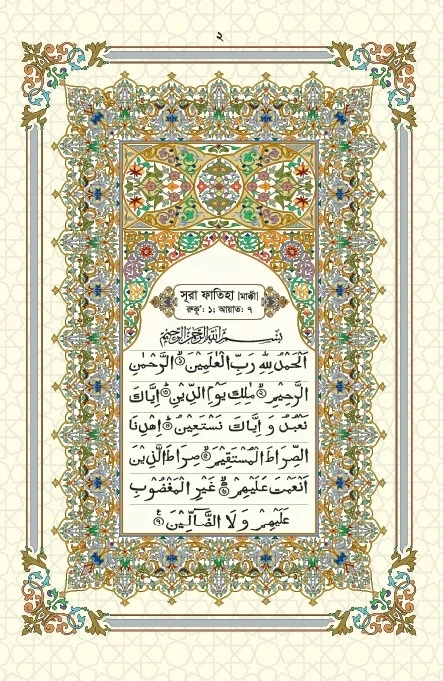 ২
সূরা ফাতিহা [মাক্কী]
রুকূ': ১; আয়াত: ৭
بِسْمِ اللهِ الرَّحْمٰنِ الرَّحِيْمِ
اَلْحَمْدُ لِلّٰهِ رَبِّ الْعٰلَمِيْنَ ۙ الرَّحْمٰنِ
الرَّحِيْمِ ۙ مٰلِكِ يَوْمِ الدِّيْنِ ؕ اِيَّاكَ
نَعْبُدُ وَ اِيَّاكَ نَسْتَعِيْنُ ؕ اِهْدِنَا
الصِّرَاطَ الْمُسْتَقِيْمَ ۙ صِرَاطَ الَّذِيْنَ
اَنْعَمْتَ عَلَيْهِمْ ۙ غَيْرِ الْمَغْضُوْبِ
عَلَيْهِمْ وَ لَا الضَّآلِّيْنَ